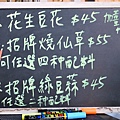 花生豆花 $45
招牌燒仙草 $55
可任選四種配料
招牌綠豆蒜 $45
任選二種配料